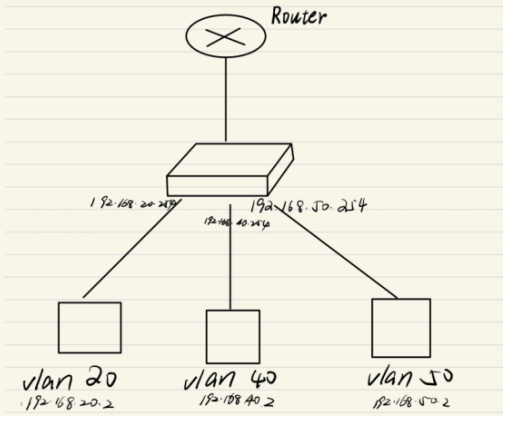 Router
192.168.20.254
192.168.50.254
192.168.40.254
vlan 20
192.168.20.2
vlan 40
192.168.40.2
vlan 50
192.168.50.2